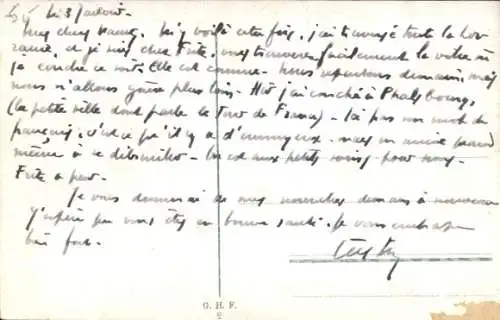 le 3 Janvier.
Mes chers parents. M'y voilà cette fois, j'ai traversé toute la Lor-
raine, et je suis chez Fritz, vous trouverez facilement la ville où
je couche ce soir. Elle est connue - nous repartons demain, mais
nous n'allons guère plus loin. - Hier j'ai couché à Phalsbourg,
(la petite ville dont parle le Tour de France) - Ici pas un mot de
français, c'est ce qu'il y a d'ennuyeux - mais on arrive quand
même à se débrouiller - On est aux petits soins pour nous -
Fritz a peur.
Je vous donnerai de mes nouvelles demain à nouveau
J'espère que vous êtes en bonne santé. Je vous embrasse
bien fort.
G. H. F.